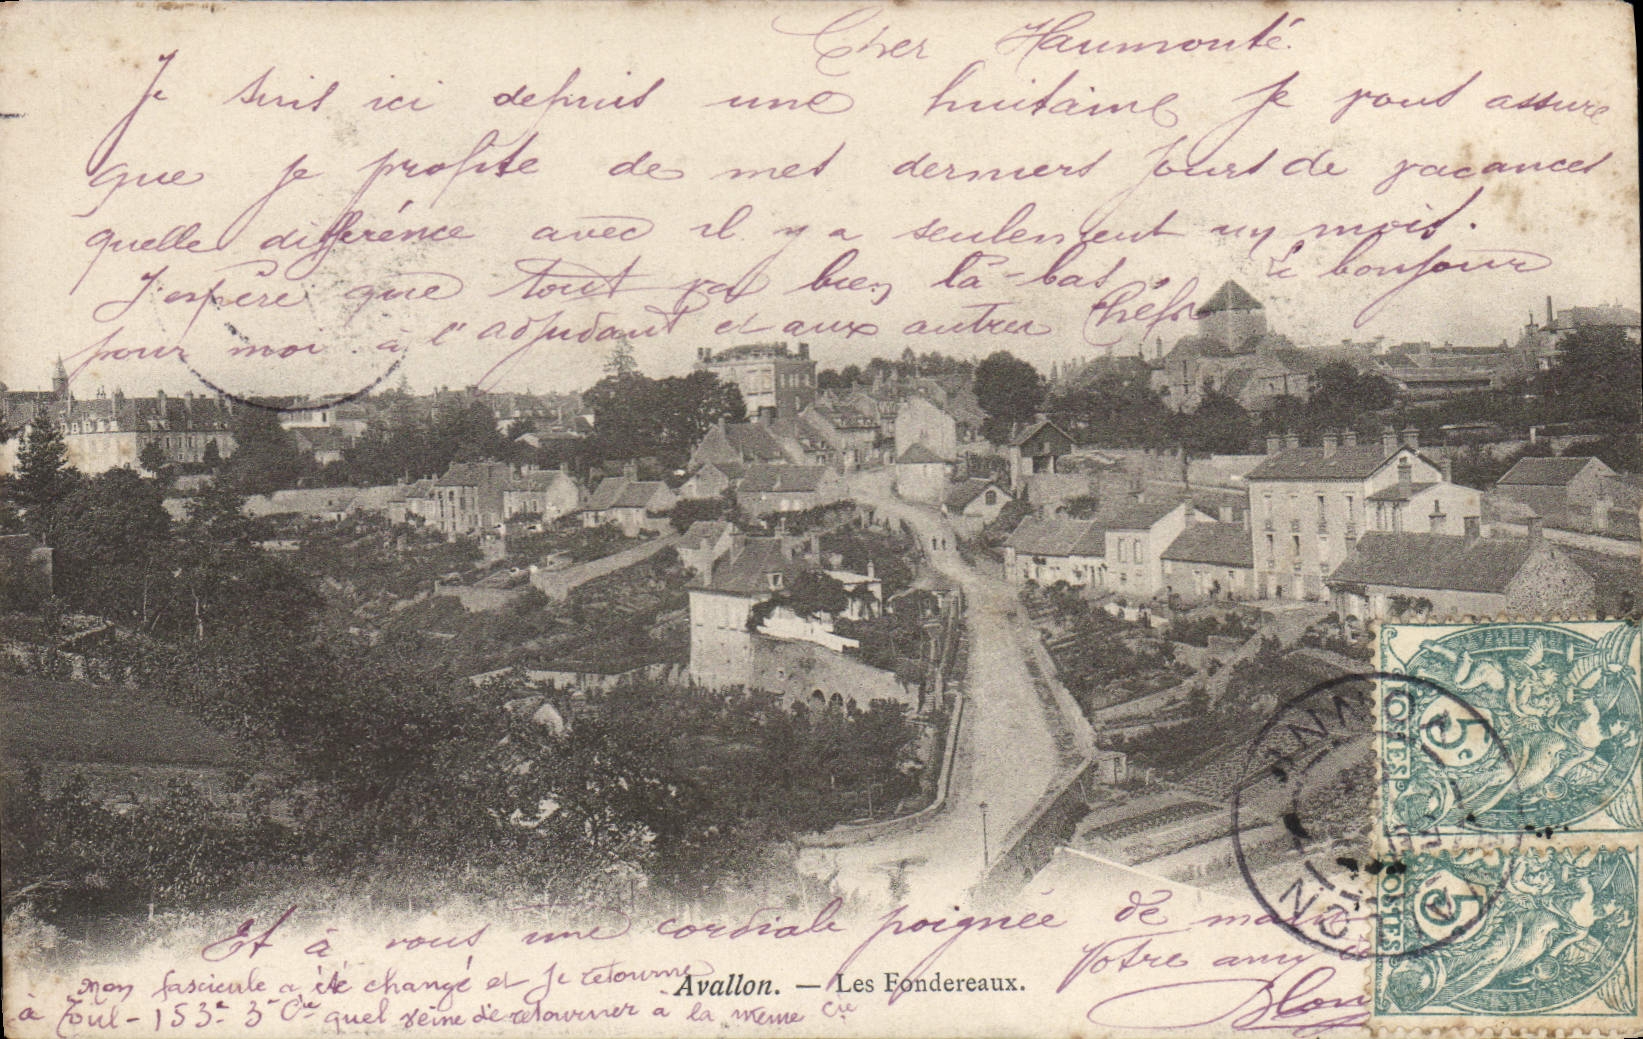 Cher Haumonté.
Je suis ici depuis une huitaine Je vous assure
que je profite de mes derniers jours de vacances
quelle différence avec il y a seulement un mois.
J'espère que tout va bien là-bas le bonjour
pour moi a l'adjudant et aux autres Chefs
Et à vous une cordiale poignée de main
Votre ami
Mon fascicule a été changé et Je retourne
à Toul - 153e 3e Cie quel veine de retourner à la meme Cie
Avallon. — Les Fondereaux.
AVALLON
YONNE
5c
POSTES
5c
POSTES